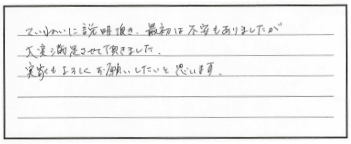 ていねいに説明頂き、最初は不安もありましたが
大変満足させて頂きました。
実家もよろしくお願いしたいと思います。